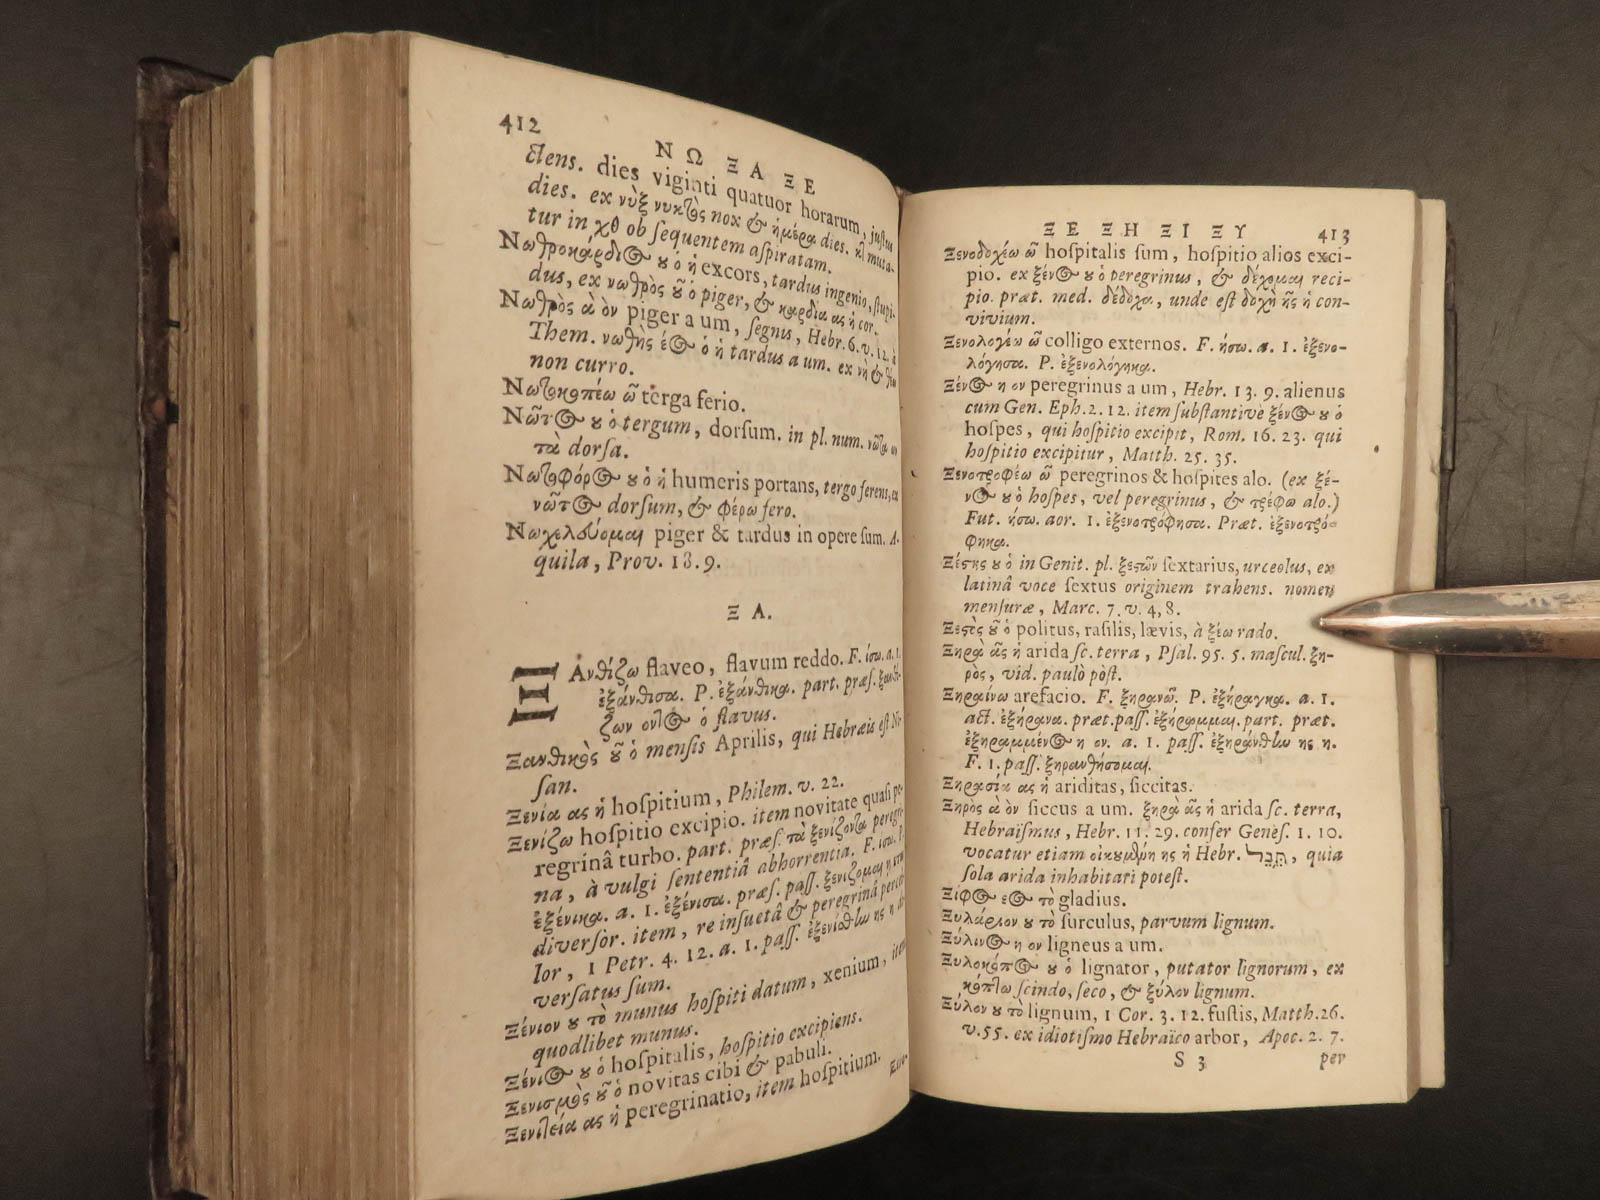 412
ΝΩ ΞΑ ΞΕ
ctens. dies viginti quatuor horarum, justus
dies. ex νὺξ νυκτὸς nox & ἡμέρα dies. κ muta-
tur in χθ ob sequentem aspiratam.
Νωθροκάρδιος ου ὁ ἡ excors, tardus ingenio, stupi-
dus, ex νωθρὸς οῦ ὁ piger, & καρδία ας ἡ cor.
Νωθρὸς ὰ ὸν piger a um, segnis, Hebr. 6. v. 12. à
Them. νωθὴς έος ὁ ἡ tardus a um. ex νὴ & θέω
non curro.
Νωτοκοπέω ῶ terga ferio.
Νῶτος ου ὁ tergum, dorsum. in pl. num. νῶτα ων
τὰ dorsa.
Νωτοφόρος ου ὁ ἡ humeris portans, tergo ferens, ex
νῶτος dorsum, & φέρω fero.
Νωχελεύομαι piger & tardus in opere sum. A-
quila, Prov. 18. 9.
Ξ Α.
ΞΑνθίζω flaveo, flavum reddo. F. ίσω. a. 1.
ἐξάνθισα. P. ἐξάνθικα. part. præs. ξανθί-
ζων οντος ὁ flavus.
Ξανθικὸς οῦ ὁ mensis Aprilis, qui Hebræis est Ni-
san.
Ξενία ας ἡ hospitium, Philem. v. 22.
Ξενίζω hospitio excipio. item novitate quasi pe-
regrinâ turbo. part. præs. τὰ ξενίζοντα peregri-
na, à vulgi sententiâ abhorrentia. F. ίσω. P.
ἐξένικα. a. 1. ἐξένισα. præs. pass. ξενίζομαι
diversor. item, re insuetâ & peregrinâ percel-
lor, 1 Petr. 4. 12. a. 1. pass. ἐξενίσθην ης η di-
versatus sum.
Ξένιον ου τὸ munus hospiti datum, xenium, item
quodlibet munus.
Ξένιος ου ὁ hospitalis, hospitio excipiens.
Ξενισμὸς οῦ ὁ novitas cibi & pabuli.
Ξενιτεία ας ἡ peregrinatio, item hospitium.
ΞΕ ΞΗ ΞΙ ΞΥ 413
Ξενοδοχέω ῶ hospitalis sum, hospitio alios exci-
pio. ex ξένος ου ὁ peregrinus, & δέχομαι reci-
pio. præt. med. δέδοχα, unde est δοχὴ ῆς ἡ con-
vivium.
Ξενολογέω ῶ colligo externos. F. ήσω. a. 1. ἐξενο-
λόγησα. P. ἐξενολόγηκα.
Ξένος η ον peregrinus a um, Hebr. 13. 9. alienus
cum Gen. Eph. 2. 12. item substantivè ξένος ου ὁ
hospes, qui hospitio excipit, Rom. 16. 23. qui
hospitio excipitur, Matth. 25. 35.
Ξενοτροφέω ῶ peregrinos & hospites alo. (ex ξέ-
νος ου ὁ hospes, vel peregrinus, & τρέφω alo.)
Fut. ήσω. aor. 1. ἐξενοτρόφησα. Præt. ἐξενοτρό-
φηκα.
Ξέστης ου ὁ in Genit. pl. ξεστῶν sextarius, urceolus, ex
latinâ voce sextus originem trahens. nomen
mensuræ, Marc. 7. v. 4, 8.
Ξεστὸς οῦ ὁ politus, rasilis, lævis, à ξέω rado.
Ξηρὰ ᾶς ἡ arida sc. terra, Psal. 95. 5. mascul. ξη-
ρὸς, vid. paulò pòst.
Ξηραίνω arefacio. F. ξηρανῶ. P. ἐξήραγκα. a. 1.
act. ἐξήρανα. præt. pass. ἐξήραμμαι. part. præt.
ἐξηραμμένος η ον. a. 1. pass. ἐξηράνθην ης η.
F. 1. pass. ξηρανθήσομαι.
Ξηρασία ας ἡ ariditas, siccitas.
Ξηρὸς ὰ ὸν siccus a um. ξηρὰ ᾶς ἡ arida sc. terra,
Hebraïsmus, Hebr. 11. 29. confer Genes. 1. 10.
vocatur etiam οἰκουμένη ης ἡ Hebr. תֵּבֵל, quia
sola arida inhabitari potest.
Ξίφος εος τὸ gladius.
Ξυλάριον ου τὸ surculus, parvum lignum.
Ξύλινος η ον ligneus a um.
Ξυλοκόπος ου ὁ lignator, putator lignorum, ex
κόπτω scindo, seco, & ξύλον lignum.
Ξύλον ου τὸ lignum, 1 Cor. 3. 12. fustis, Matth. 26.
v. 55. ex idiotismo Hebraïco arbor, Apoc. 2. 7.
S 3 per